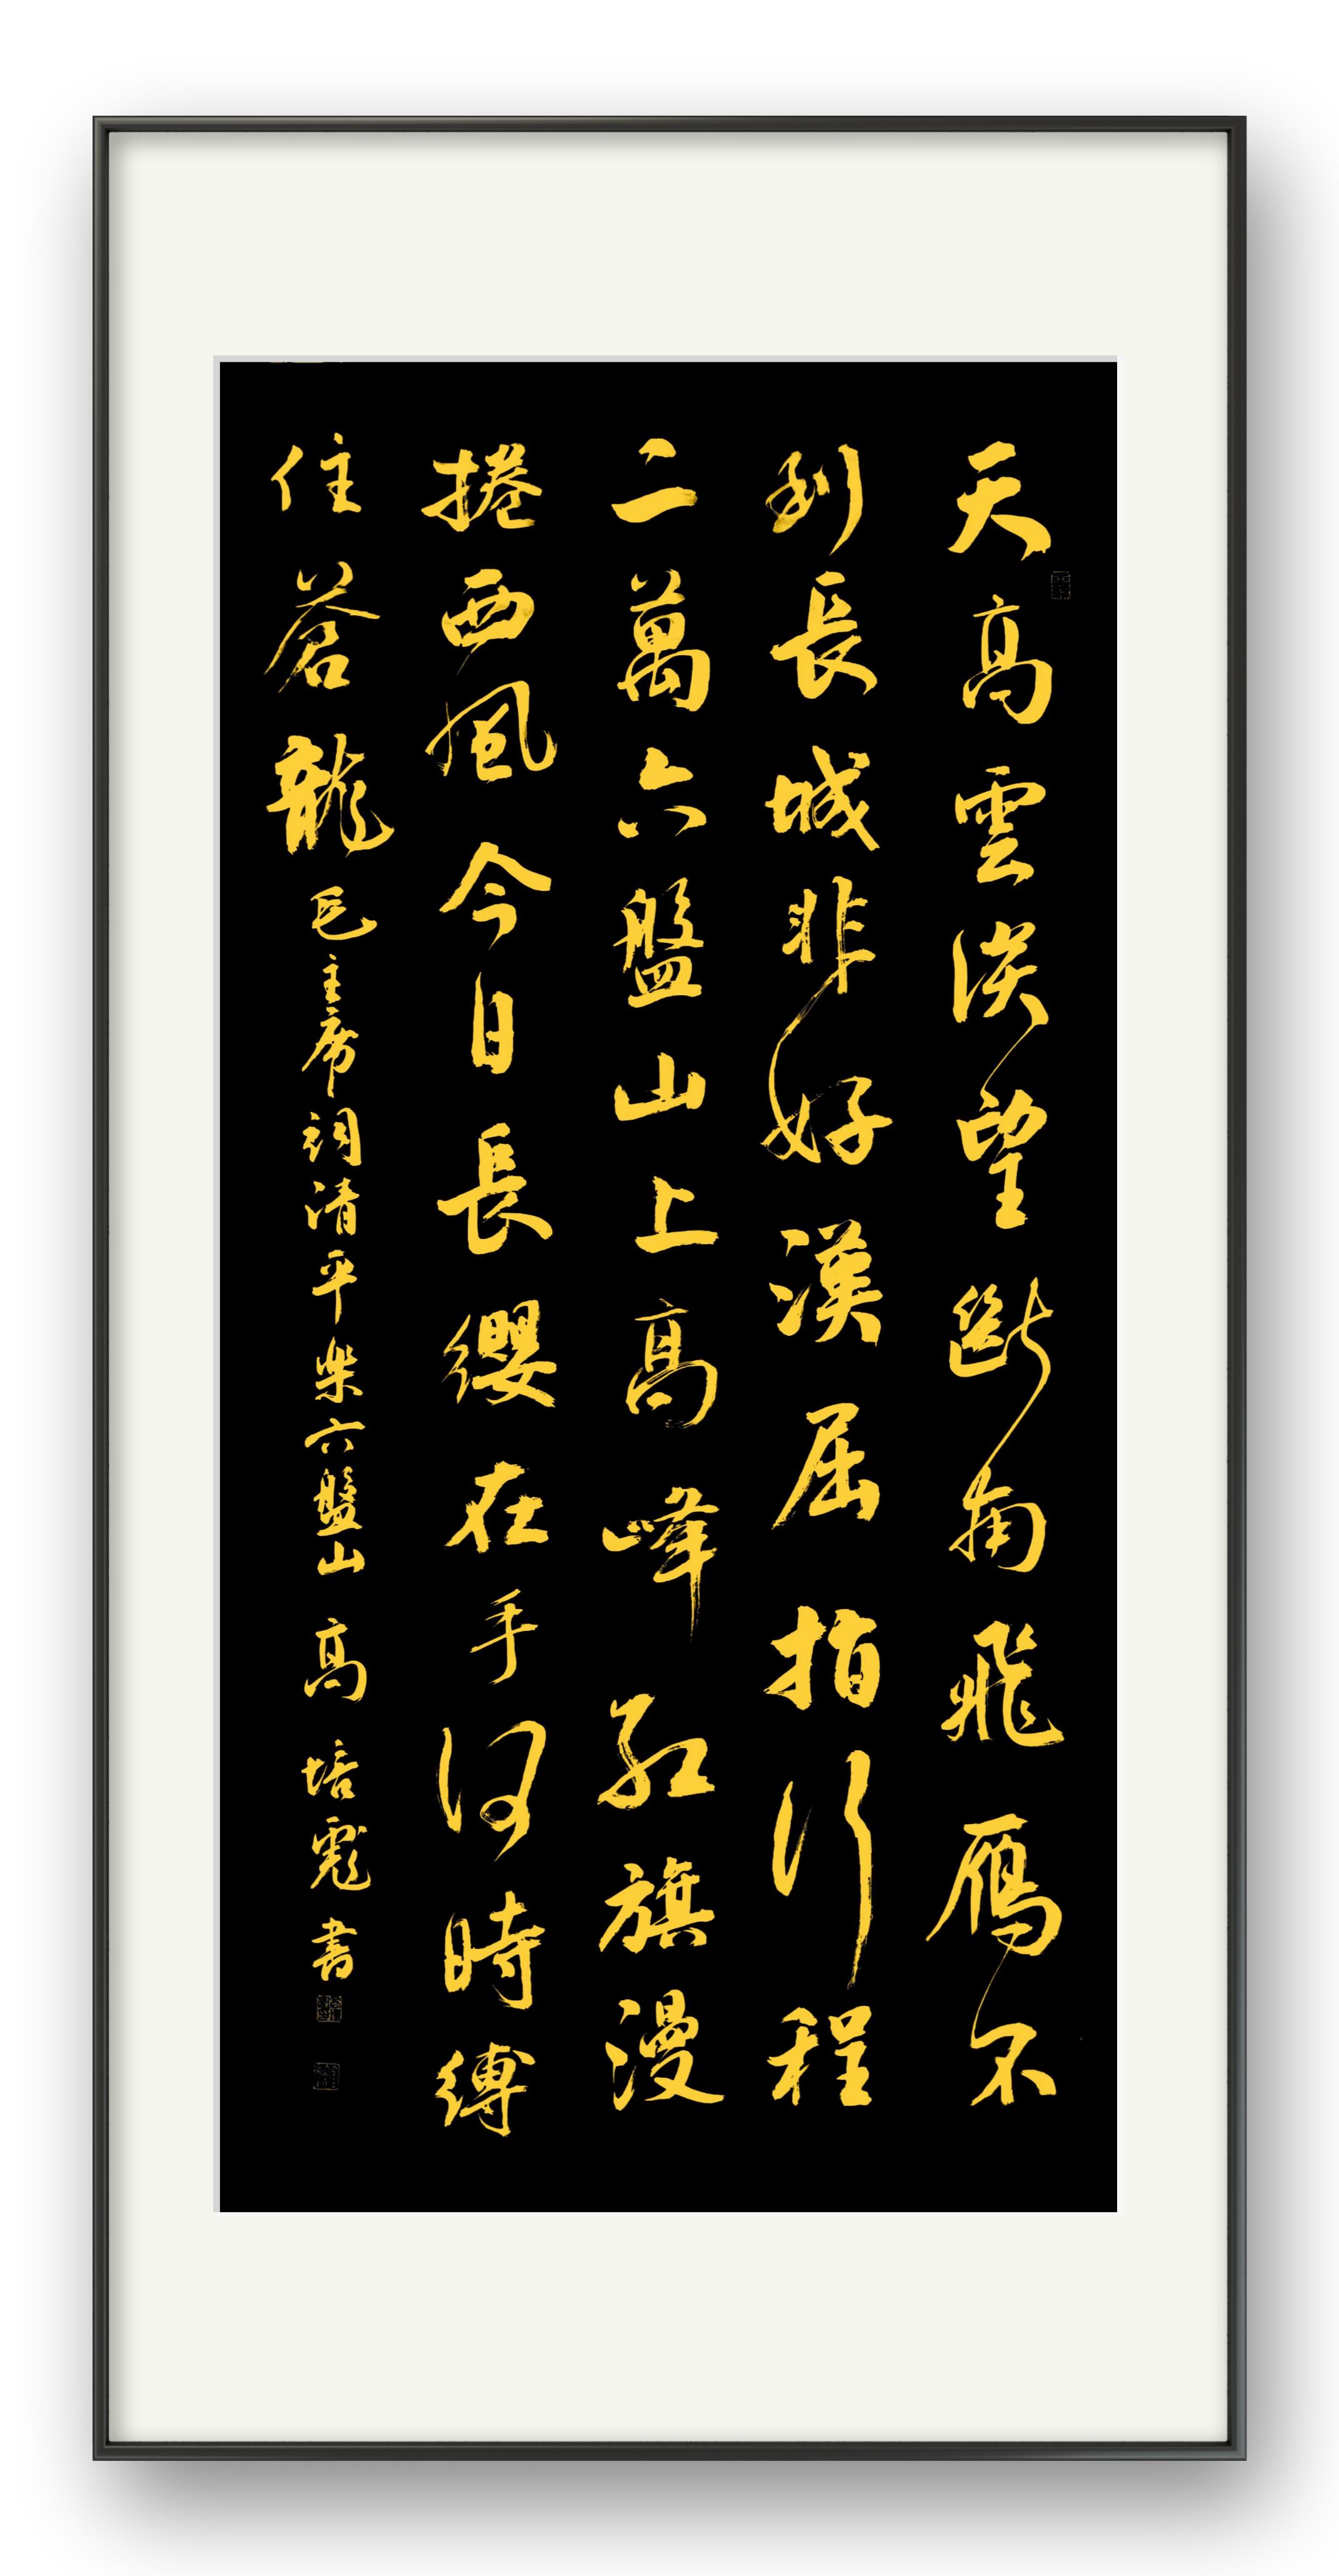 天高雲淡望斷南飛雁不
到長城非好漢屈指行程
二萬六盤山上高峰紅旗漫
捲西風今日長纓在手何時縛
住蒼龍毛主席詞清平樂六盤山高培書